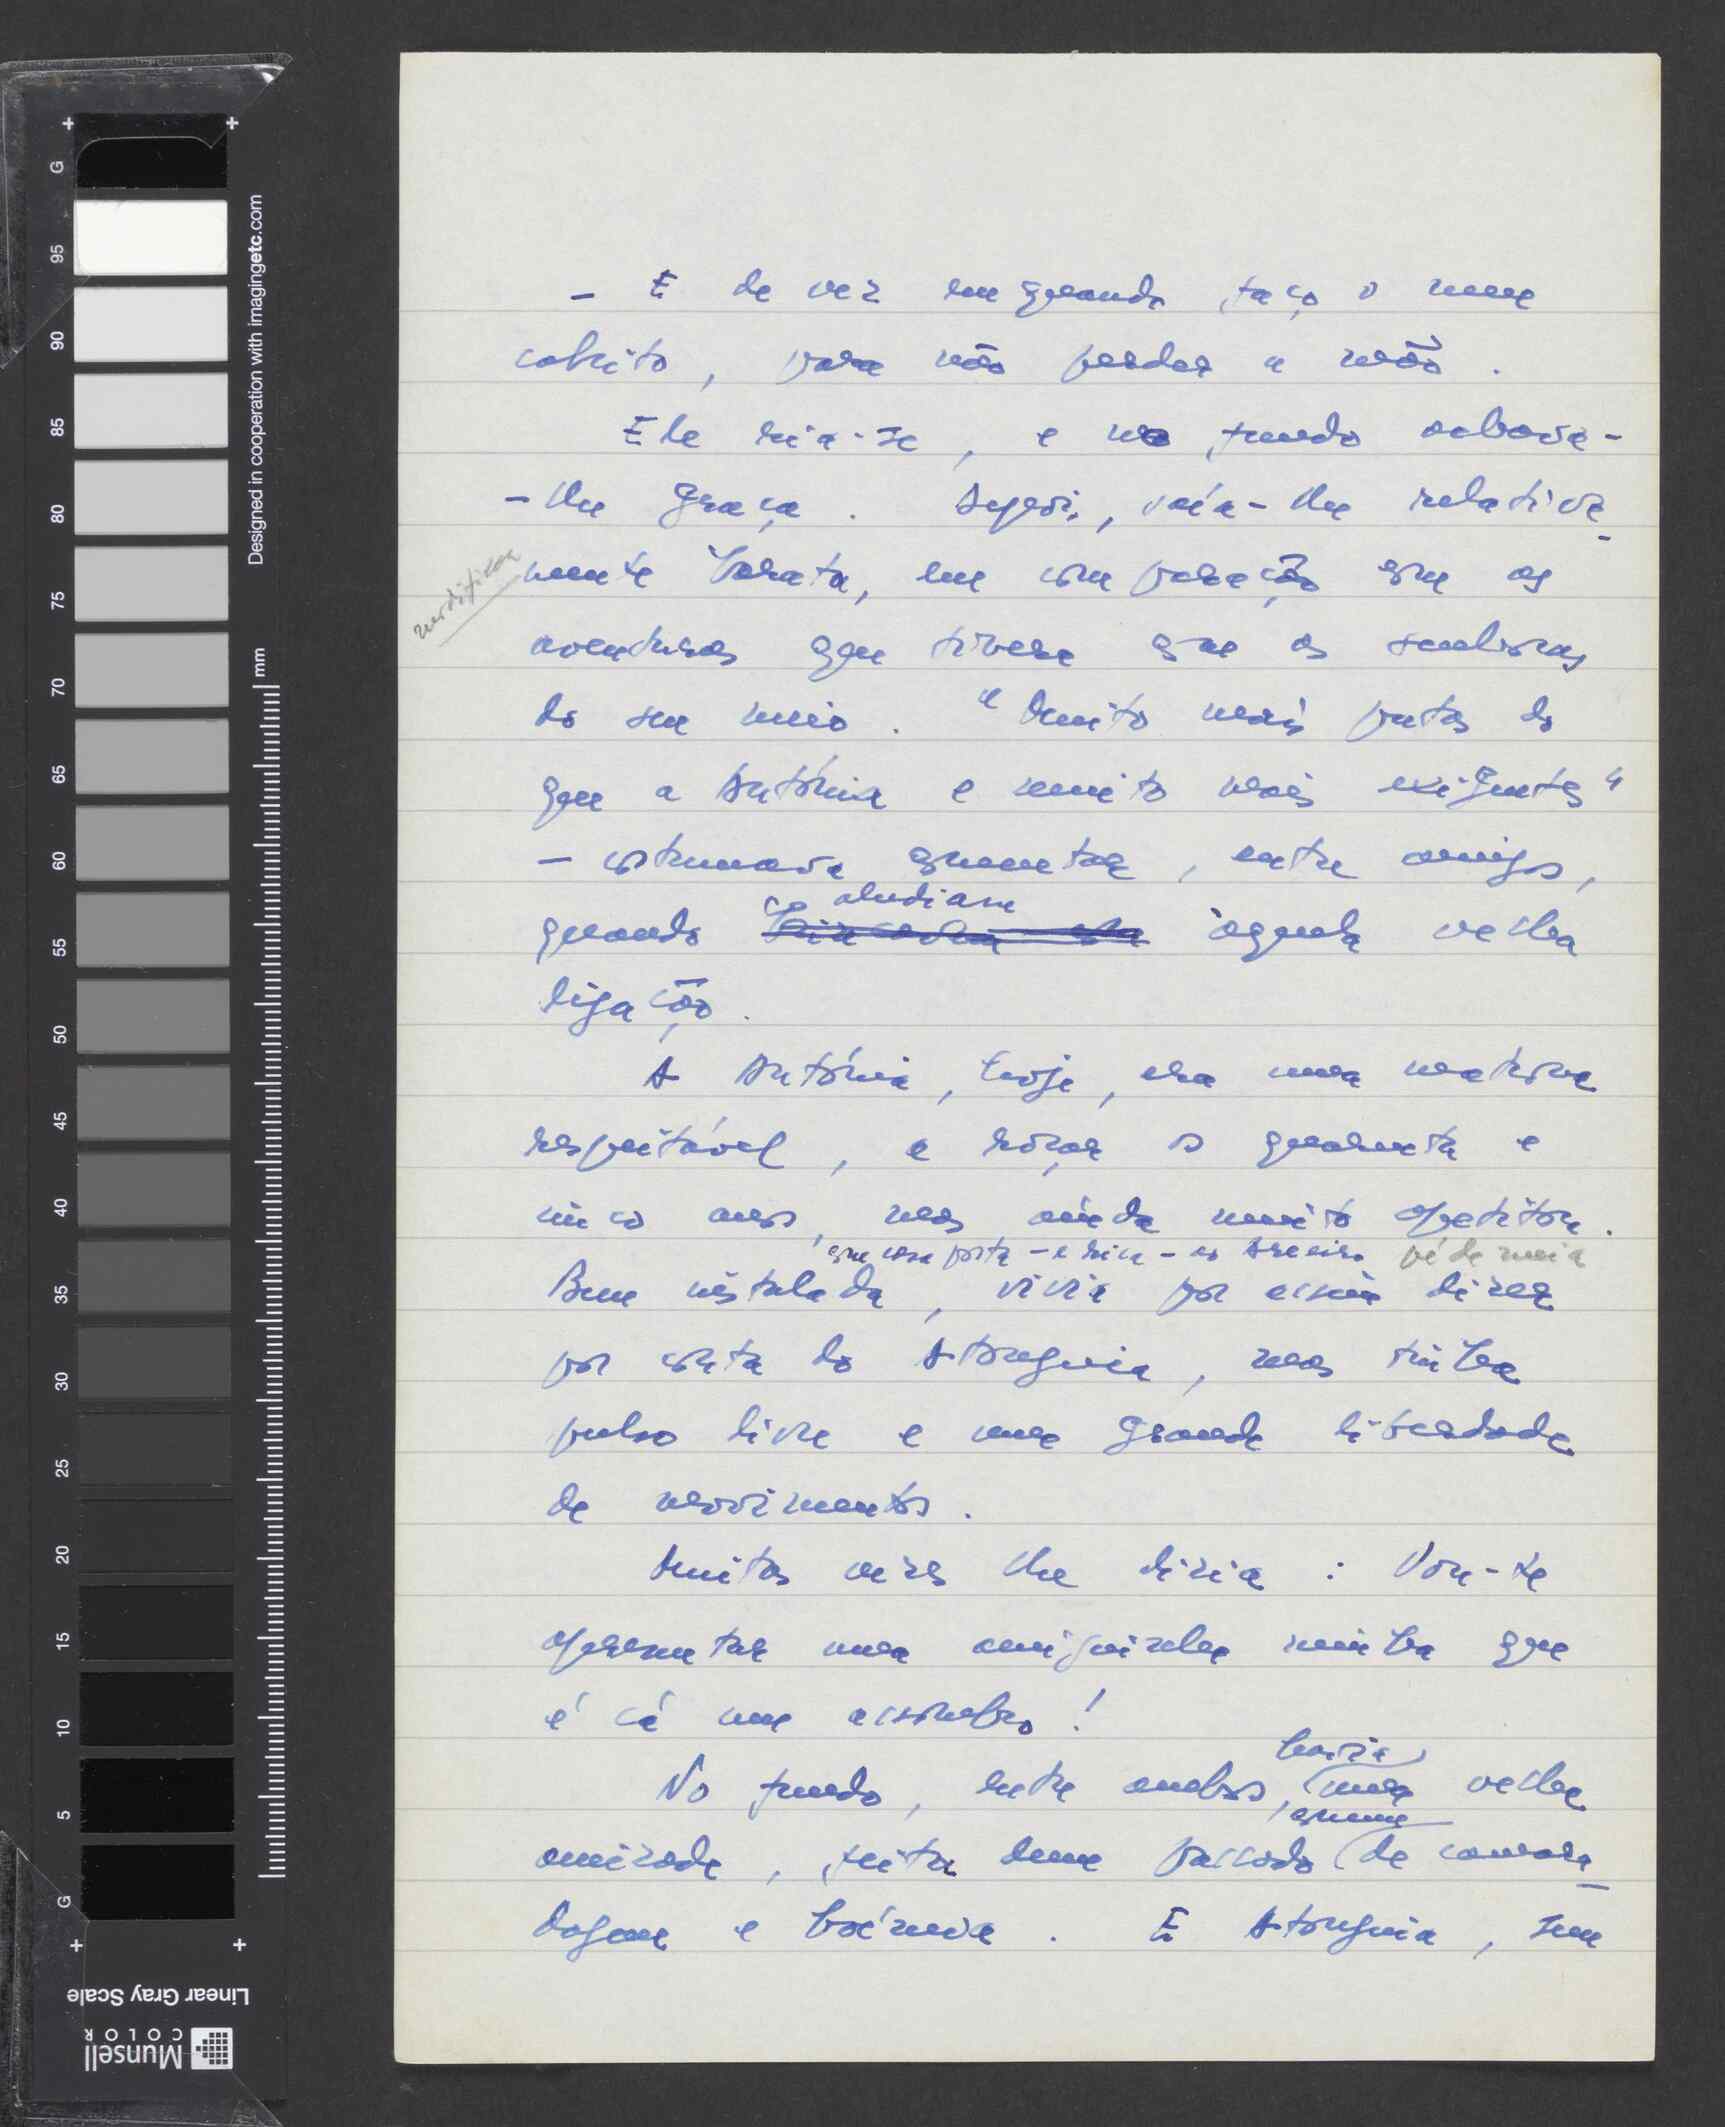 - E de vez em quando faço o meu
cabrito, para não perder a mão.
Ele ria-se, e no fundo achava-
-lhe graça. Aqui, saía-lhe relativa-
modificar
mente barata, em comparação com as
aventuras que tivera com as senhoras
do seu meio. "Muito mais putas do
que a Antónia e muito mais exigentes"
- costumava comentar, entre amigos,
se aludiam
quando àquela velha
ligação.
A Antónia, hoje, era uma matrona
respeitável, a roçar os quarenta e
cinco anos, mas ainda muito apetitosa.
com casa posta - e rica - ao Areeiro pé de meia
Bem instalada, vivia por assim dizer
por conta do Atouguia, mas tinha
pulso livre e uma grande liberdade
de movimentos.
Muitas vezes lhe dizia: Vou-te
apresentar uma amiguinha minha que
é cá um assombro!
havia
No fundo, entre ambos, uma velha
comum
amizade, feita dum passado de camara-
dagem e boémia. E Atouguia, sem
Designed in cooperation with imagingetc.com
mm
G 95 90 85 80 75 70 65 60 55 50 45 40 35 30 25 20 15 10 5 G
Linear Gray Scale
Munsell
COLOR